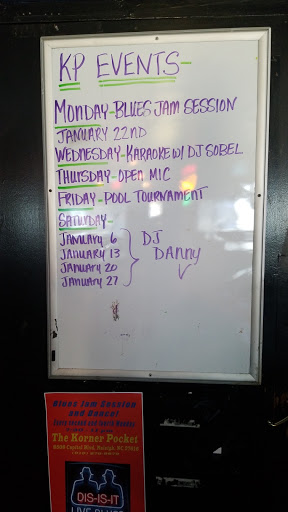 KP EVENTS-
MONDAY-BLUES JAM SESSION
JANUARY 22ND
WEDNESDAY-KARAOKE W/ DJ SOBEL
THURSDAY-OPEN MIC
FRIDAY-POOL TOURNAMENT
SATURDAY-
JANUARY 6
JANUARY 13
JANUARY 20
JANUARY 27
DJ
DANNY
Blues Jam Session
and Dance!
Every second and fourth Monday
The Korner Pocket
DIS-IS-IT
LIVE BLUES